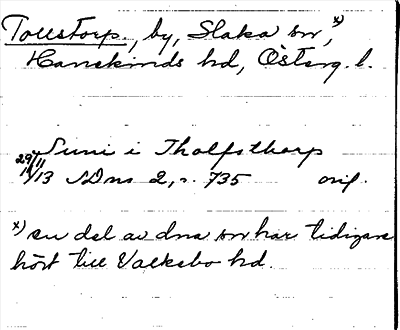 Tollstorp, by, Slaka sn, x)
Hanekinds hd, Österg. l.
Suni i Tholfsthorp
29/11 1413 SDns 2, s. 735 orig.
x) en del av dna sn har tidigare
hört till Valkebo hd.